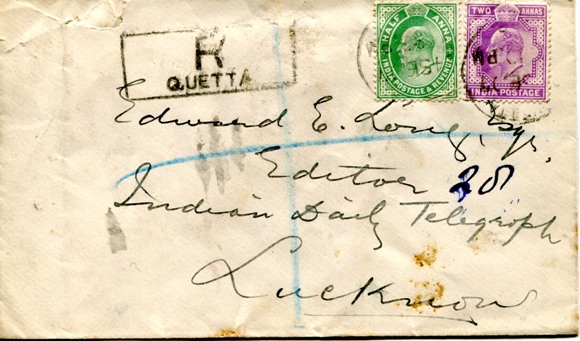 R
QUETTA
HALF ANNA
INDIA POSTAGE & REVENUE
TWO ANNAS
INDIA POSTAGE
PM
Edward E. Long, Esqr.
Editor
Indian Daily Telegraph
Lucknow